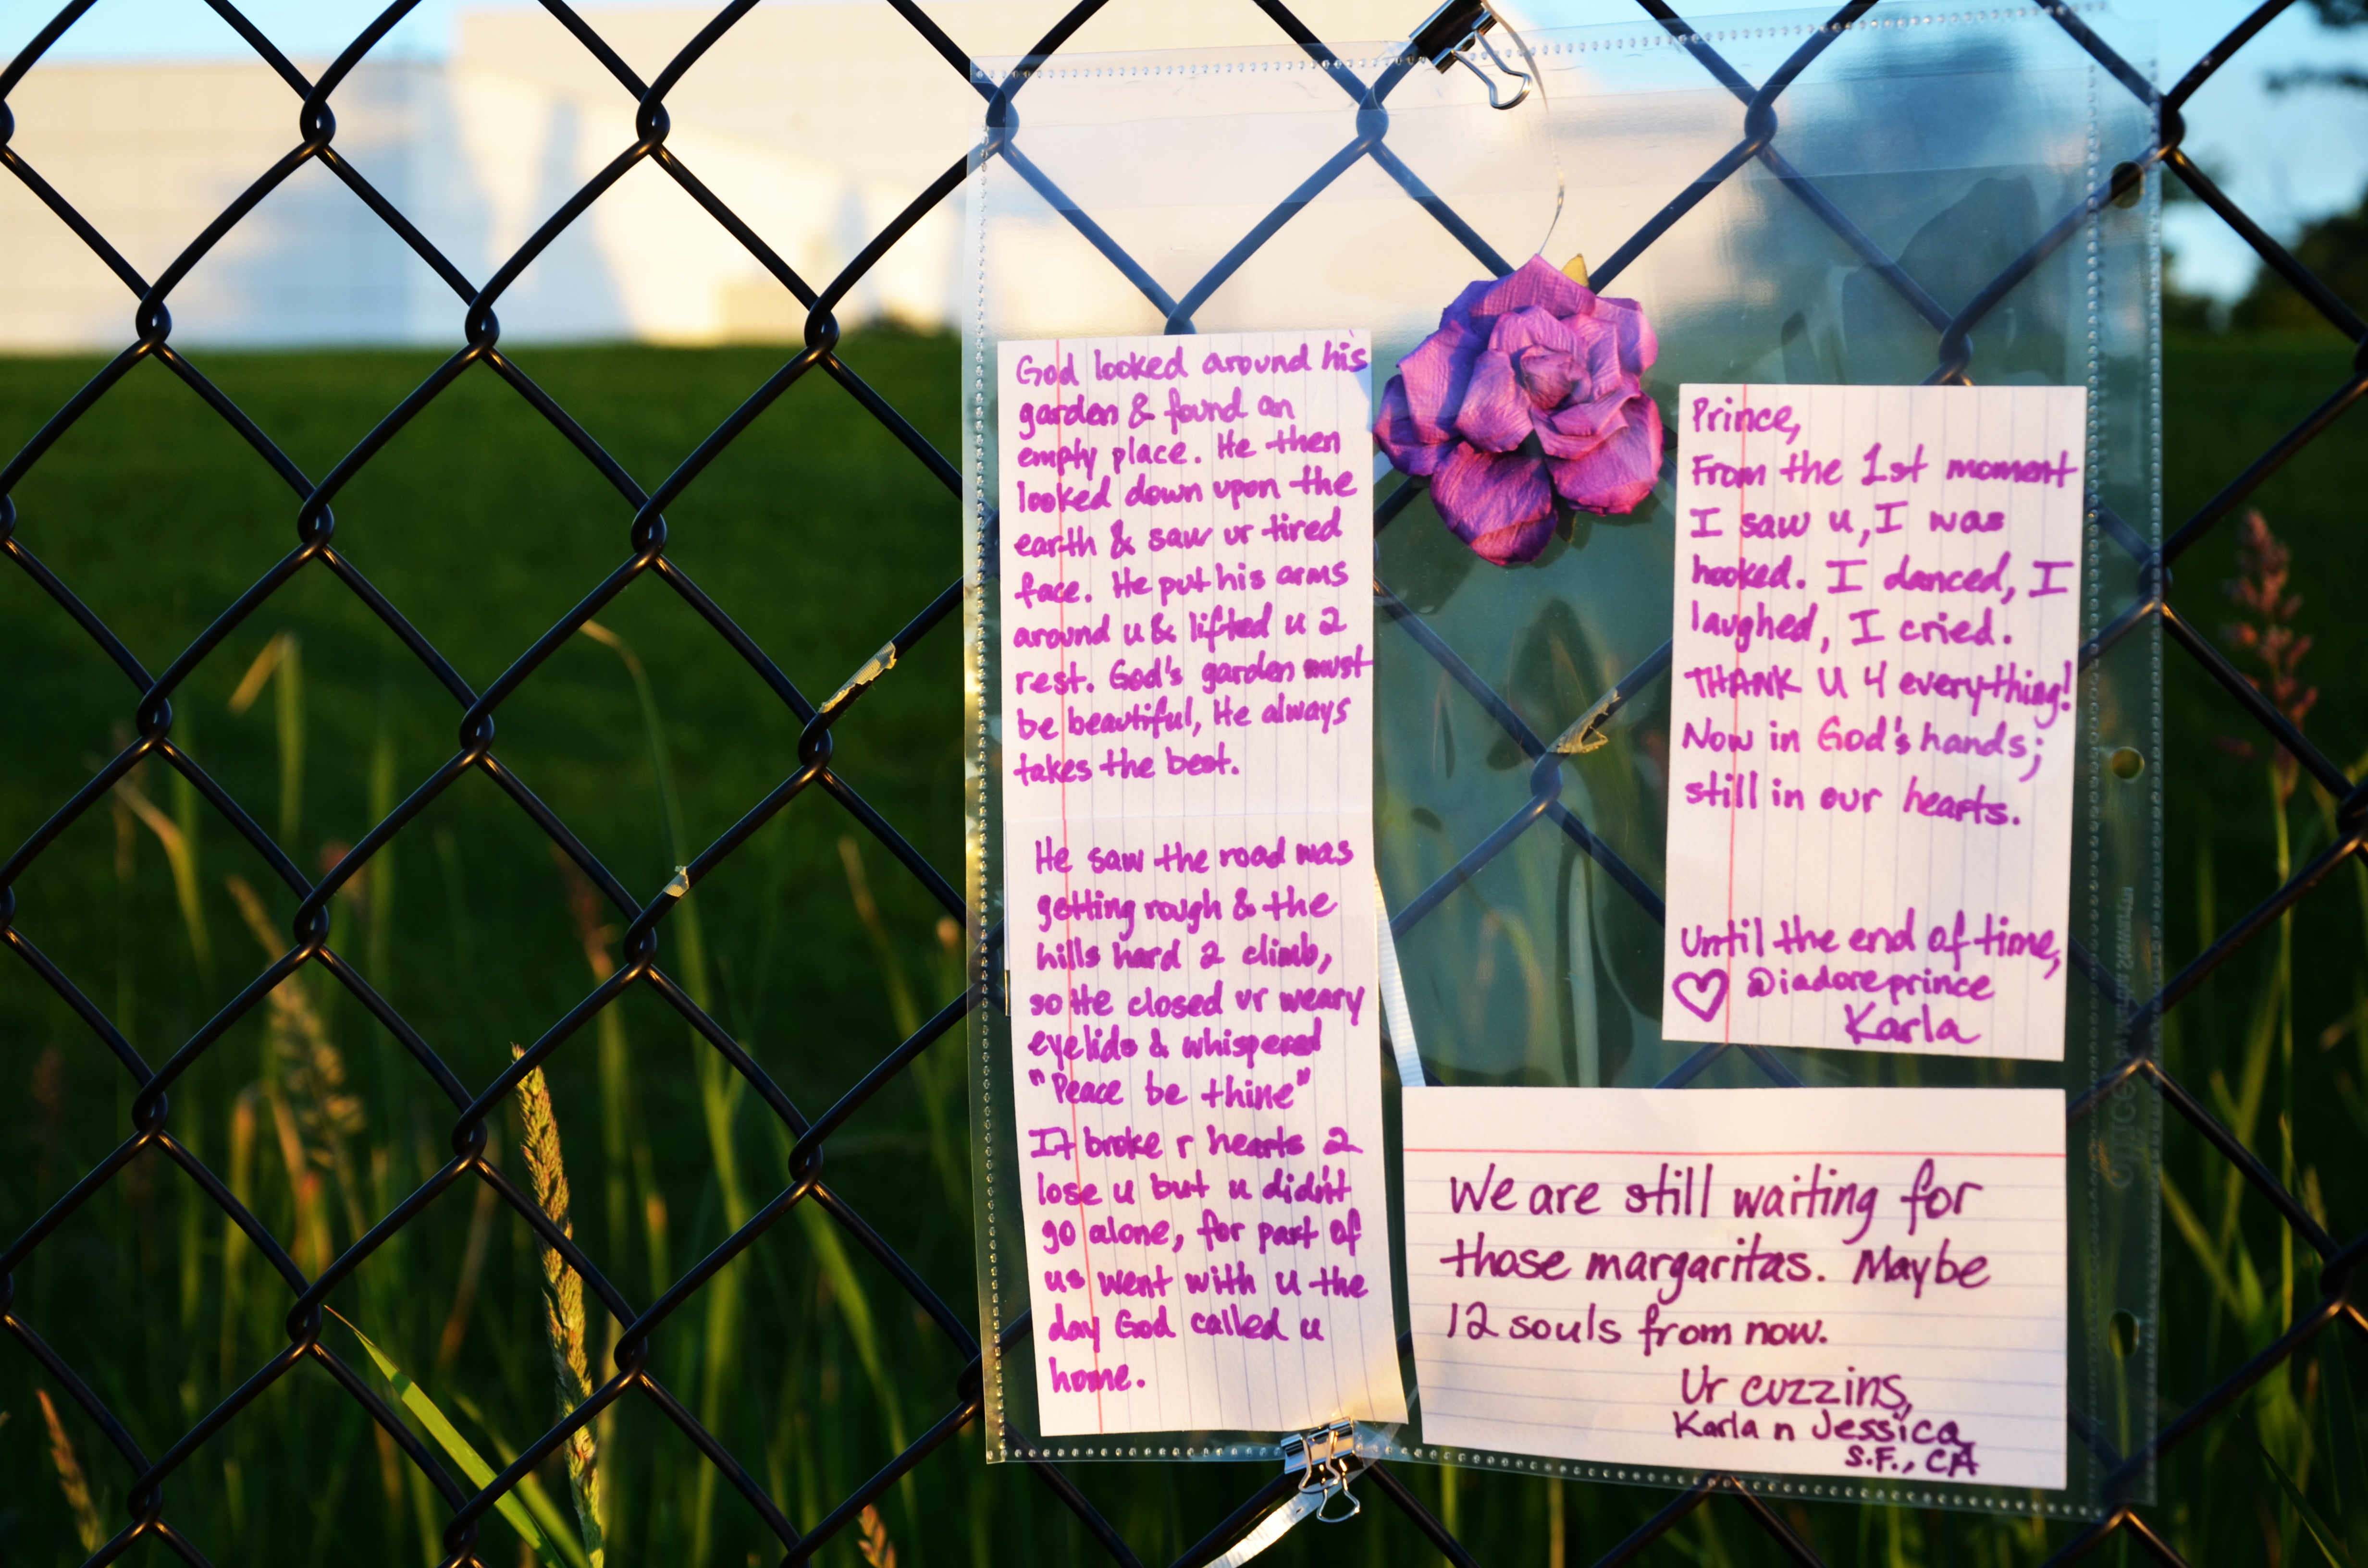 God looked around his
garden & found an
empty place. He then
looked down upon the
earth & saw ur tired
face. He put his arms
around u & lifted u 2
rest. God's garden must
be beautiful, He always
takes the best.
He saw the road was
getting rough & the
hills hard 2 climb,
so He closed ur weary
eyelids & whispered
"Peace be thine"
It broke r hearts 2
lose u but u didn't
go alone, for part of
us went with u the
day God called u
home.
Prince,
From the 1st moment
I saw u, I was
hooked. I danced, I
laughed, I cried.
THANK U 4 everything!
Now in God's hands;
still in our hearts.
Until the end of time,
♡ @iadoreprince
Karla
We are still waiting for
those margaritas. Maybe
12 souls from now.
Ur cuzzins,
Karla n Jessica
S.F., CA